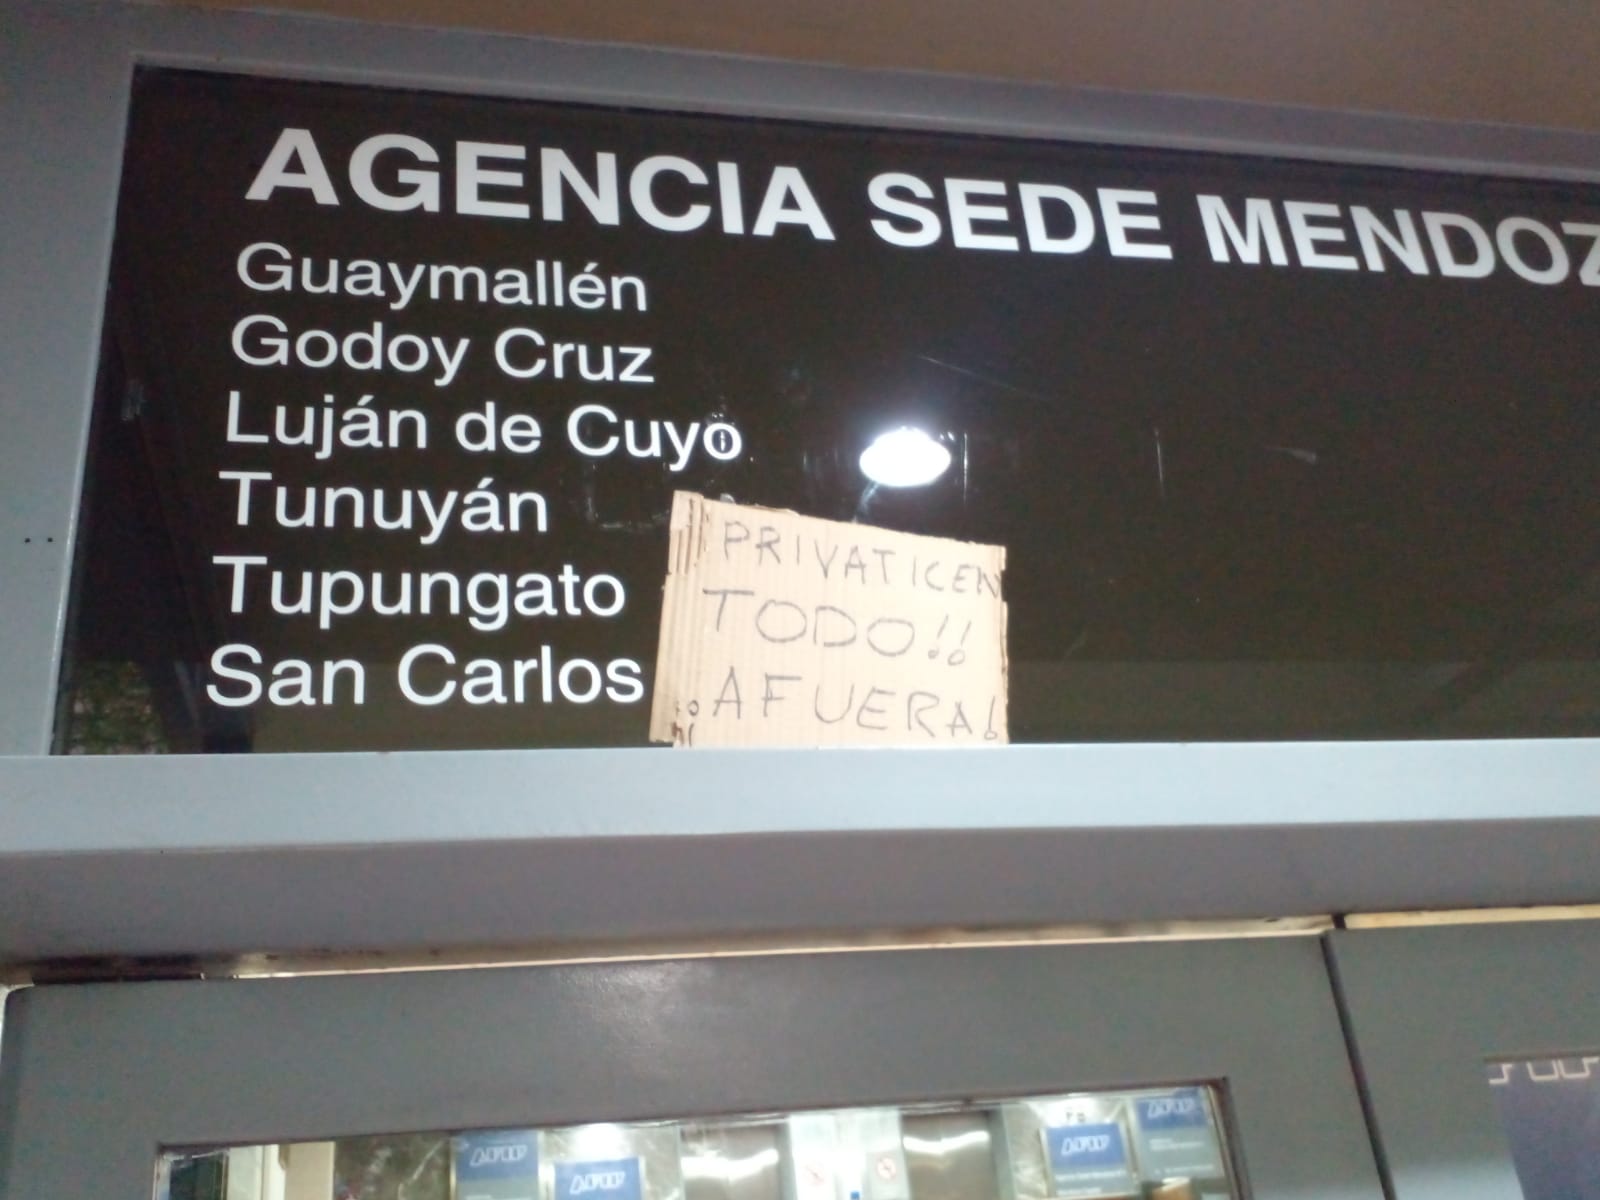 AGENCIA SEDE MENDOZ
Guaymallén
Godoy Cruz
Luján de Cuyo
Tunuyán
Tupungato
San Carlos
PRIVATICEN
TODO!!
¡AFUERA!
AFIP
AFIP
AFIP
AFIP